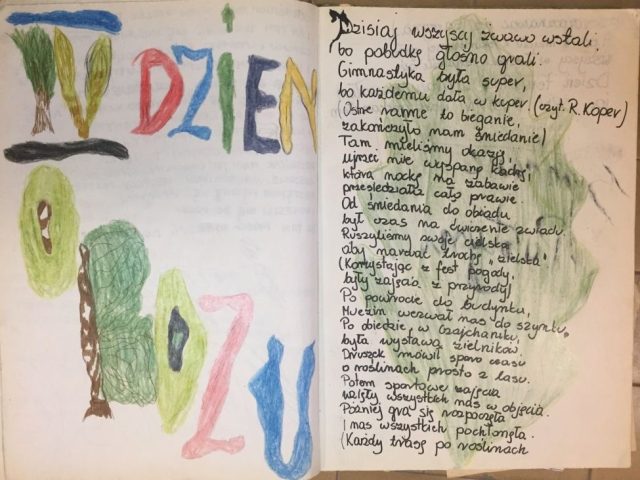 IV DZIEŃ
OBOZU
Dzisiaj wszyscy żwawo wstali
bo pobudkę głośno grali.
Gimnastyka była super,
bo każdemu dała w kuper. (czyt. R. Koper)
(Ostre ranne to bieganie,
zakończyło nam śniadanie)
Tam mieliśmy okazję,
ujrzeć nie wyspaną kadrę,
która nockę na zabawie
przesiedziała całą prawie.
Od śniadania do obiadu
był czas na ćwiczenie zwiadu.
Ruszyliśmy swoje cielska
aby narwać trochę "zielska"
(Korzystając z fest pogody,
były zajęcia z przyrody)
Po powrocie do budynku,
Muezin wezwał nas do szynku,
Po obiedzie, w Czajchaniku,
była wystawa zielników.
Druszek mówił sporo czasu
o roślinach prosto z lasu.
Potem sportowe zajęcia
wzięły wszystkich nas w objęcia.
Później gra się rozpoczęła
I nas wszystkich pochłonęła.
(Każdy trasę po roślinach